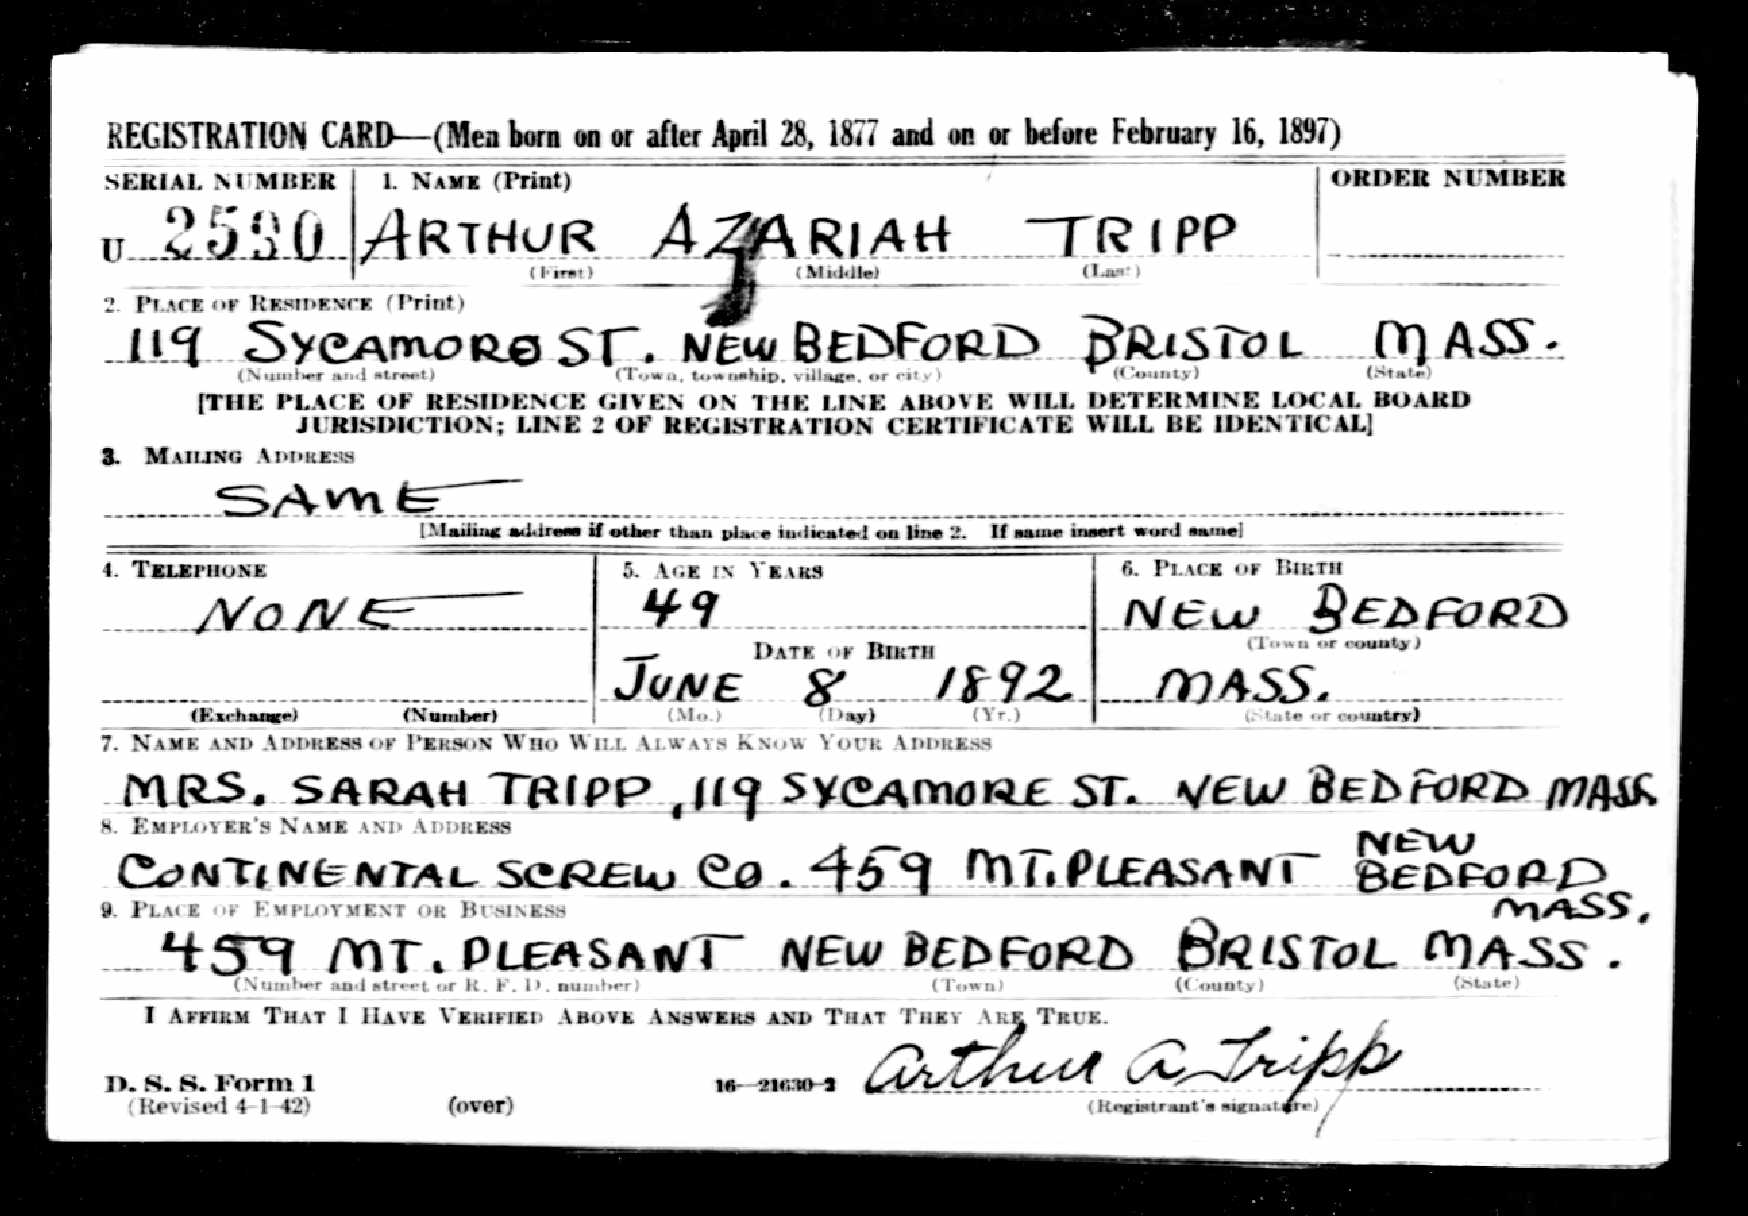 REGISTRATION CARD—(Men born on or after April 28, 1877 and on or before February 16, 1897)
SERIAL NUMBER 1. NAME (Print) ORDER NUMBER
U ARTHUR AZARIAH TRIPP
(First) (Middle) (Last)
2. PLACE OF RESIDENCE (Print)
119 SYCAMORE ST. NEW BEDFORD BRISTOL MASS.
(Number and street) (Town, township, village, or city) (County) (State)
[THE PLACE OF RESIDENCE GIVEN ON THE LINE ABOVE WILL DETERMINE LOCAL BOARD
JURISDICTION; LINE 2 OF REGISTRATION CERTIFICATE WILL BE IDENTICAL]
3. MAILING ADDRESS
SAME
[Mailing address if other than place indicated on line 2. If same insert word same]
4. TELEPHONE 5. AGE IN YEARS 6. PLACE OF BIRTH
NONE 49 NEW BEDFORD
DATE OF BIRTH (Town or county)
JUNE 8 1892 MASS.
(Exchange) (Number) (Mo.) (Day) (Yr.) (State or country)
7. NAME AND ADDRESS OF PERSON WHO WILL ALWAYS KNOW YOUR ADDRESS
MRS. SARAH TRIPP, 119 SYCAMORE ST. NEW BEDFORD MASS
8. EMPLOYER'S NAME AND ADDRESS
CONTINENTAL SCREW CO. 459 MT. PLEASANT NEW BEDFORD MASS.
9. PLACE OF EMPLOYMENT OR BUSINESS
459 MT. PLEASANT NEW BEDFORD BRISTOL MASS.
(Number and street or R. F. D. number) (Town) (County) (State)
I AFFIRM THAT I HAVE VERIFIED ABOVE ANSWERS AND THAT THEY ARE TRUE.
D. S. S. Form 1 16—21630-2 Arthur A Tripp
(Revised 4-1-42) (over) (Registrant's signature)